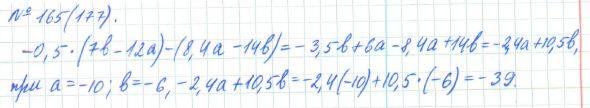 № 165(177).
-0,5·(7в-12а)-(8,4а-14в)=-3,5в+6а-8,4а+14в=-2,4а+10,5в,
при а=-10; в=-6, -2,4а+10,5в=-2,4(-10)+10,5·(-6)=-39.